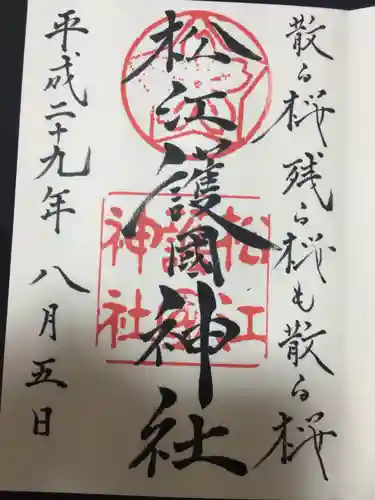 散る桜残る桜も散る桜
松江護國神社
松江護國神社
平成二十九年八月五日